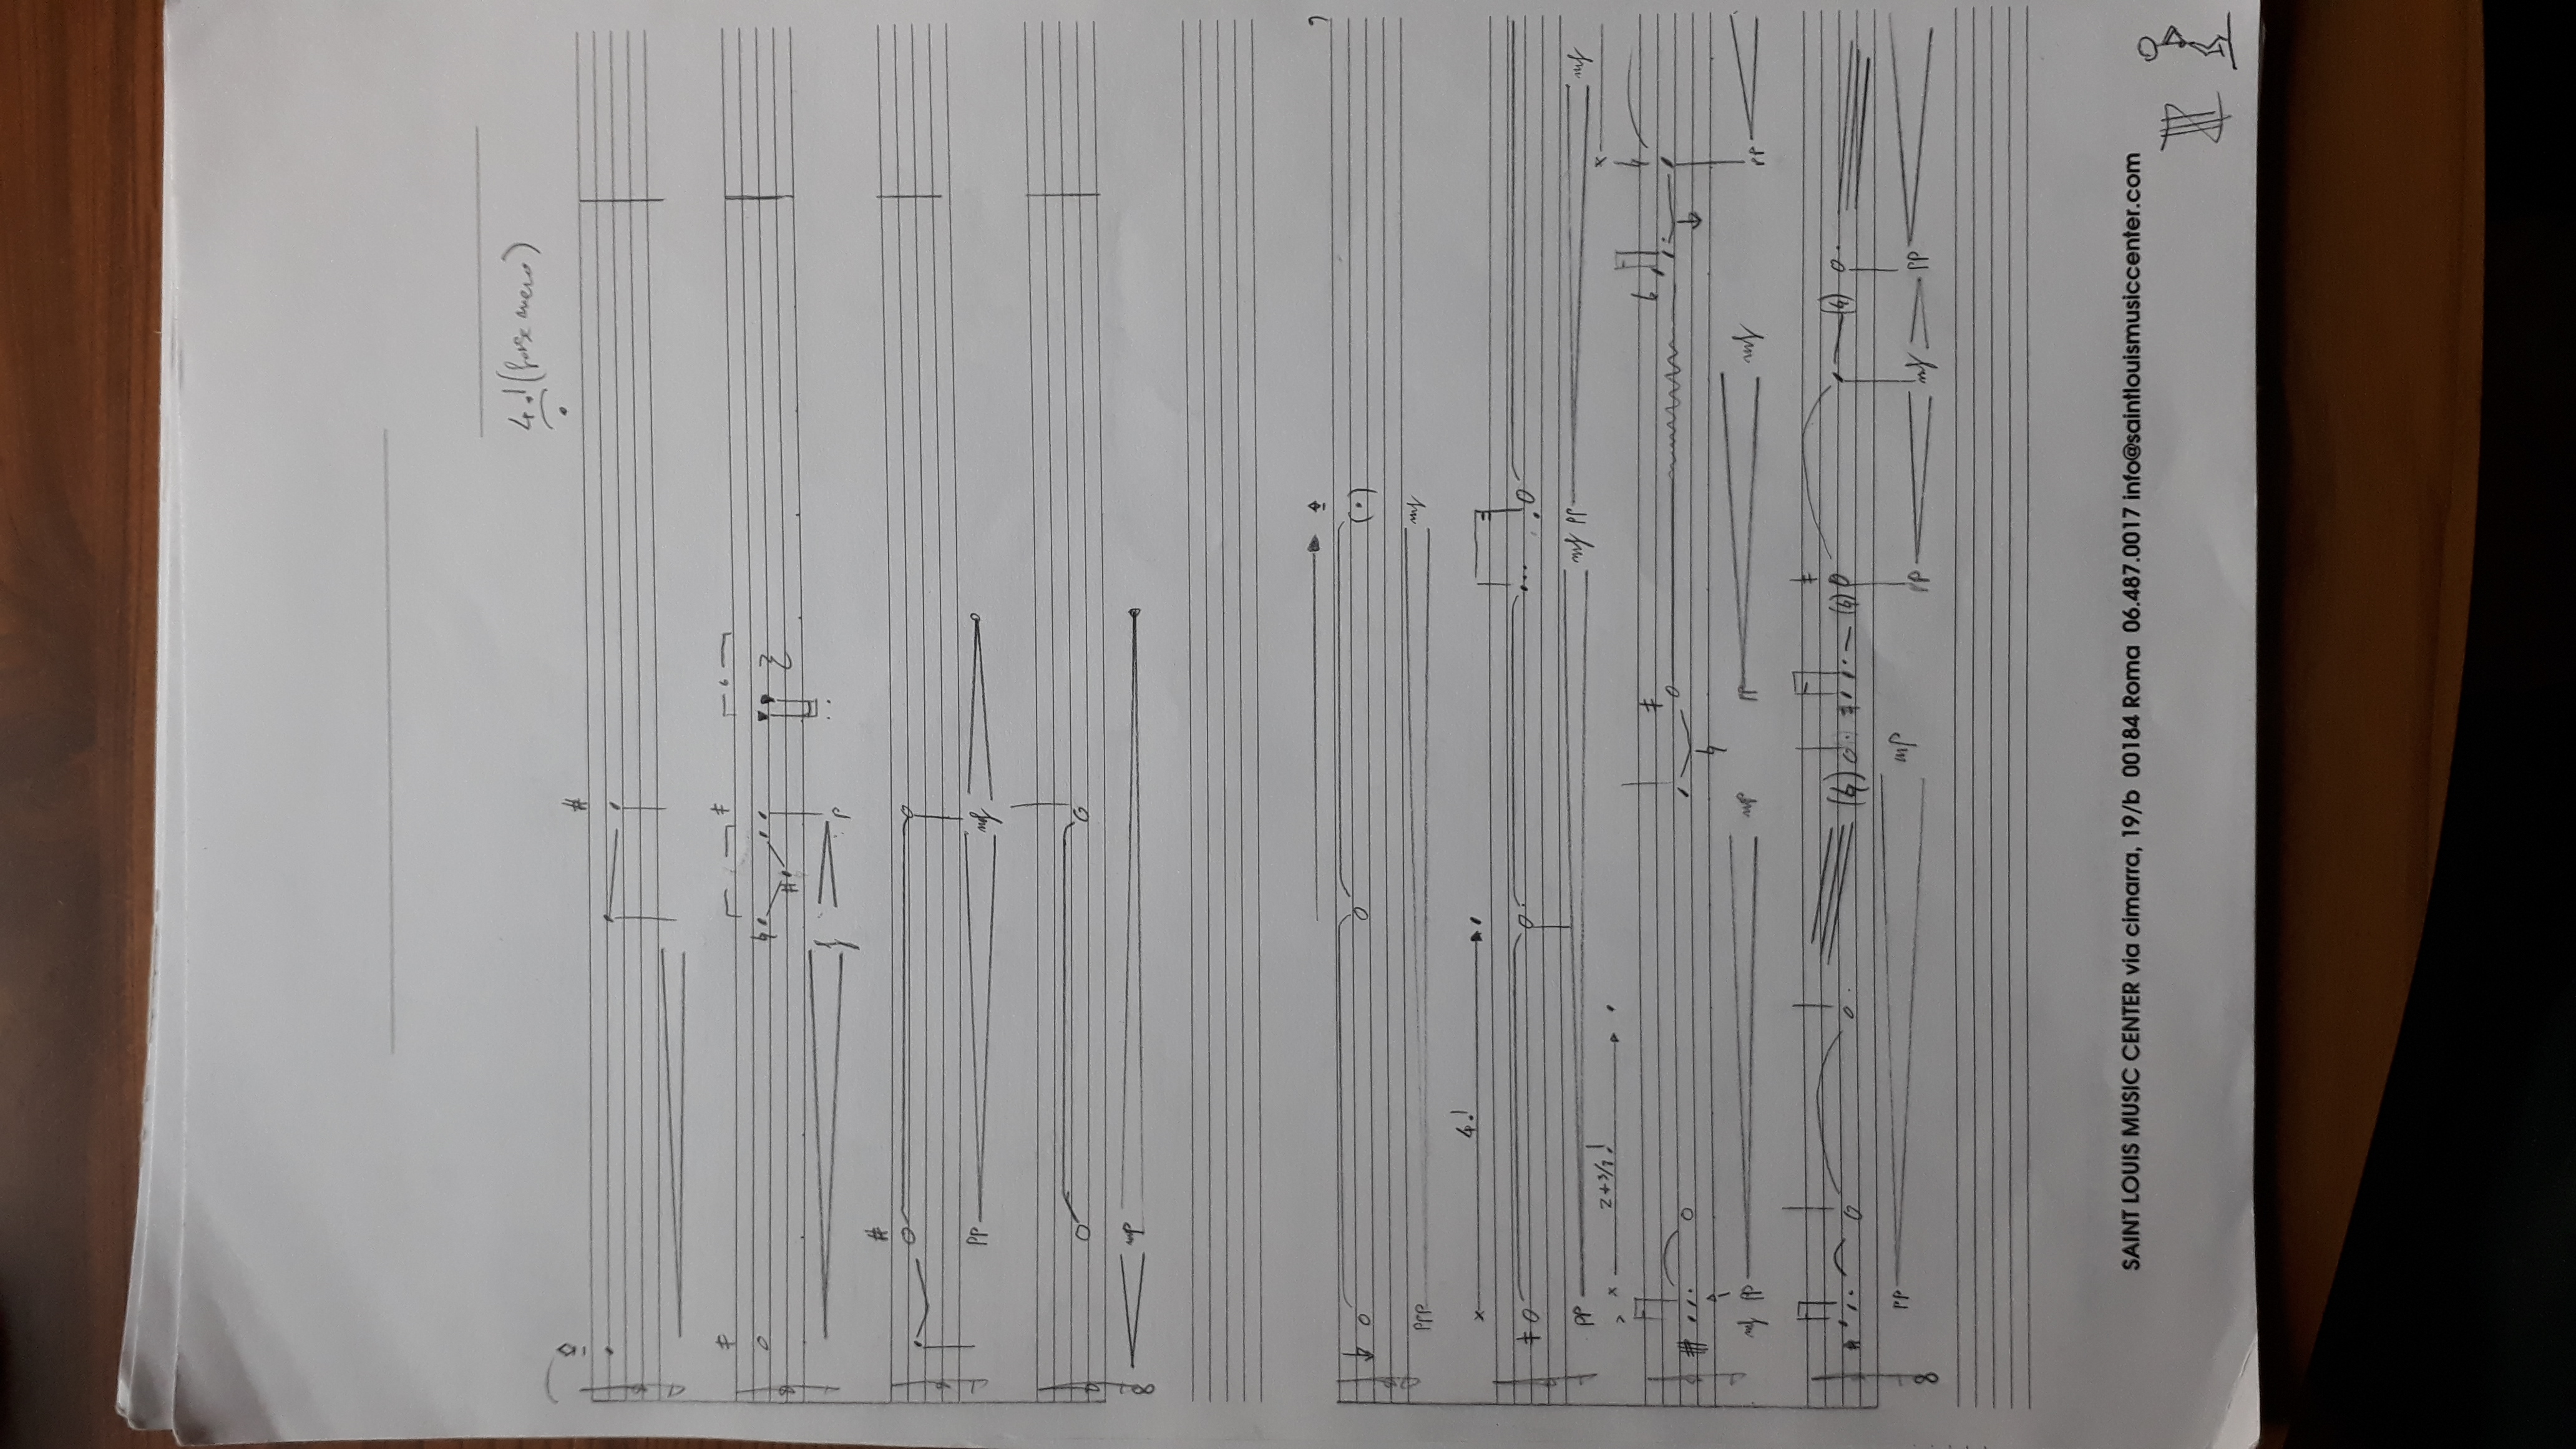 4 ♩ (forse meno)
6
f p
pp mf
8 mp
ppp mf
4 ♩
pp mf pp mf
2+3/7 ♩
mf pp mp pp mf pp
pp mp pp mf pp
8
SAINT LOUIS MUSIC CENTER via cimarra, 19/b 00184 Roma 06.487.0017 info@saintlouismusiccenter.com